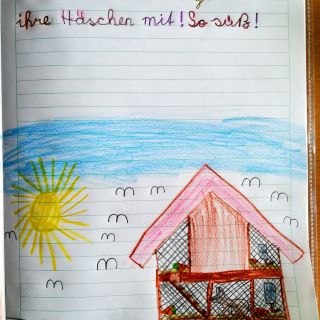 ihre Häschen mit! So süß!